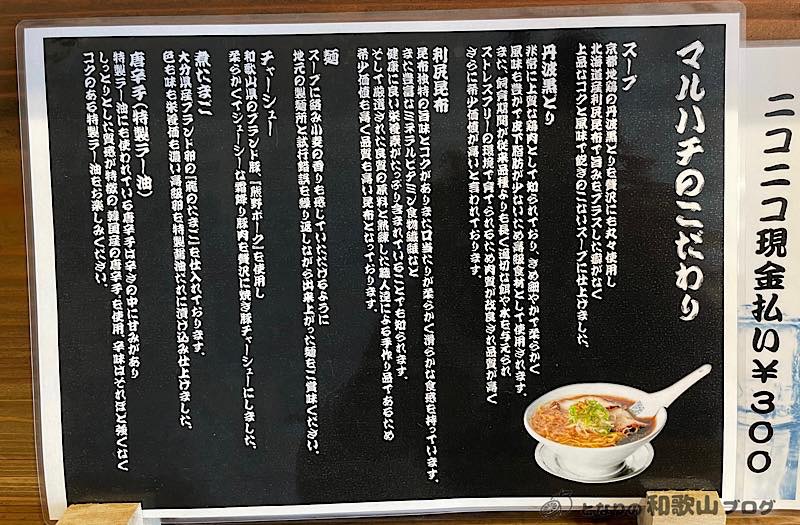 マルハチのこだわり
スープ
京都地鶏の丹波黒どりを贅沢にも丸々使用し
北海道産利尻昆布で旨みをプラスした癖がなく
上品なコクと風味で飽きのこないスープに仕上げました。
丹波黒どり
非常に上質な鶏肉として知られており、きめ細やかで柔らかく
風味も豊かで皮下脂肪が少ないため高級食材として使用されます。
また、飼育期間が従来品種よりも長く適切な餌や水を与えられ
ストレスフリーの環境で育てられるため肉質が改良され品質が高く
さらに希少価値が高いと言われております。
利尻昆布
昆布独特の旨味とコクがありまた口当たりが柔らかく滑らかな食感を持っています。
また豊富なミネラルビタミン食物繊維など
健康に良い栄養素がたっぷり含まれていることでも知られます。
そして厳選された良質の原料と熟練した職人達による手作り品であるため
希少価値も高く品質も良い昆布となっております。
麺
スープに絡み小麦の香りも感じていただけるように
地元の製麺所と試行錯誤を繰り返しながら出来上がった麺をご賞味ください。
チャーシュー
和歌山県のブランド豚、「熊野ポーク」を使用し
柔らかくてジューシーな霜降り豚肉を贅沢に焼き豚チャーシューにしました。
煮たまご
大分県産ブランド卵の「蘭のたまご」を仕入れております。
色も味も栄養価も濃い高級卵を特製醤油だれに漬け込み仕上げました。
唐辛子(特製ラー油)
特製ラー油にも使われている唐辛子は辛さの中に甘みがあり
しっとりとした質感が特徴の、韓国産の唐辛子。を使用、辛味はそれほど強くなく
コクのある特製ラー油をお楽しみください。
ニコニコ現金払い¥300
となりの和歌山ブログ